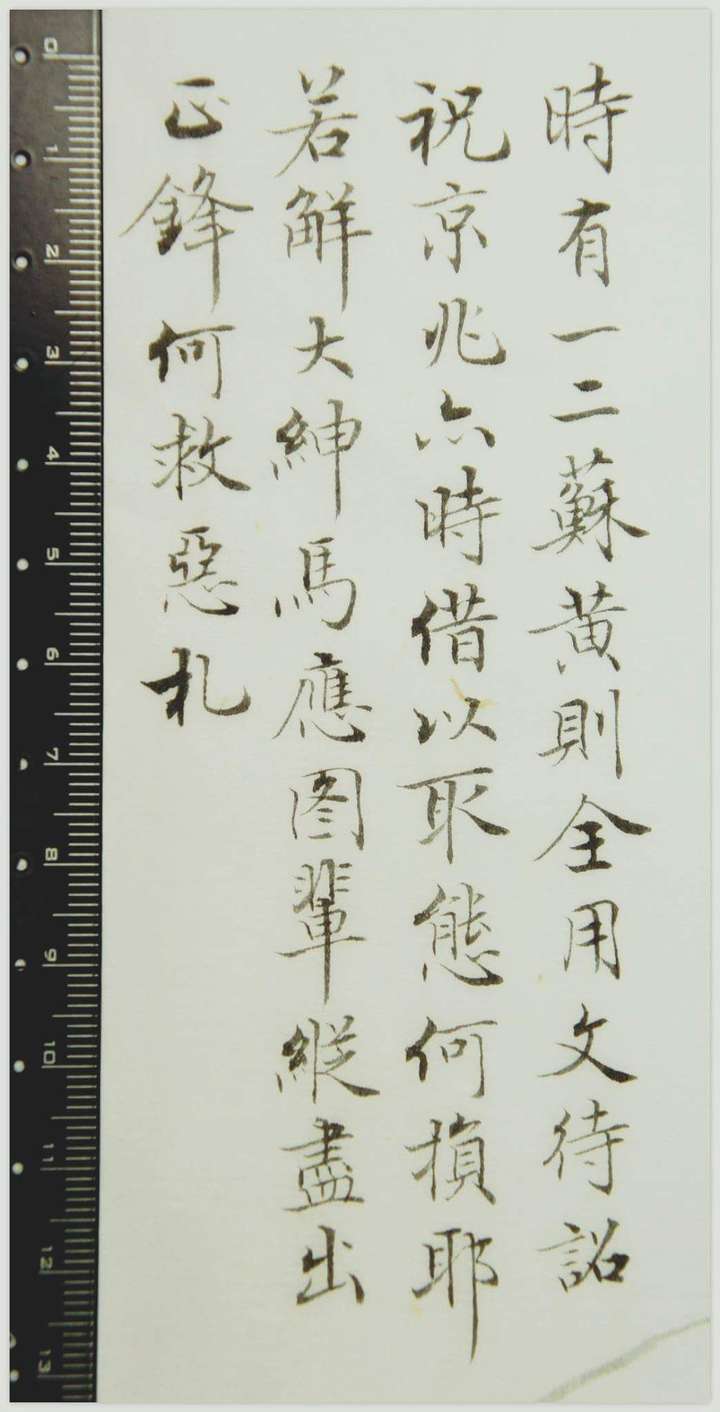 時有一二蘇黄則全用文待詔
祝京兆亦時借以取態何損耶
若解大紳馬應图輩縱盡出
正鋒何救惡札
0
1
2
3
4
5
6
7
8
9
10
11
12
13